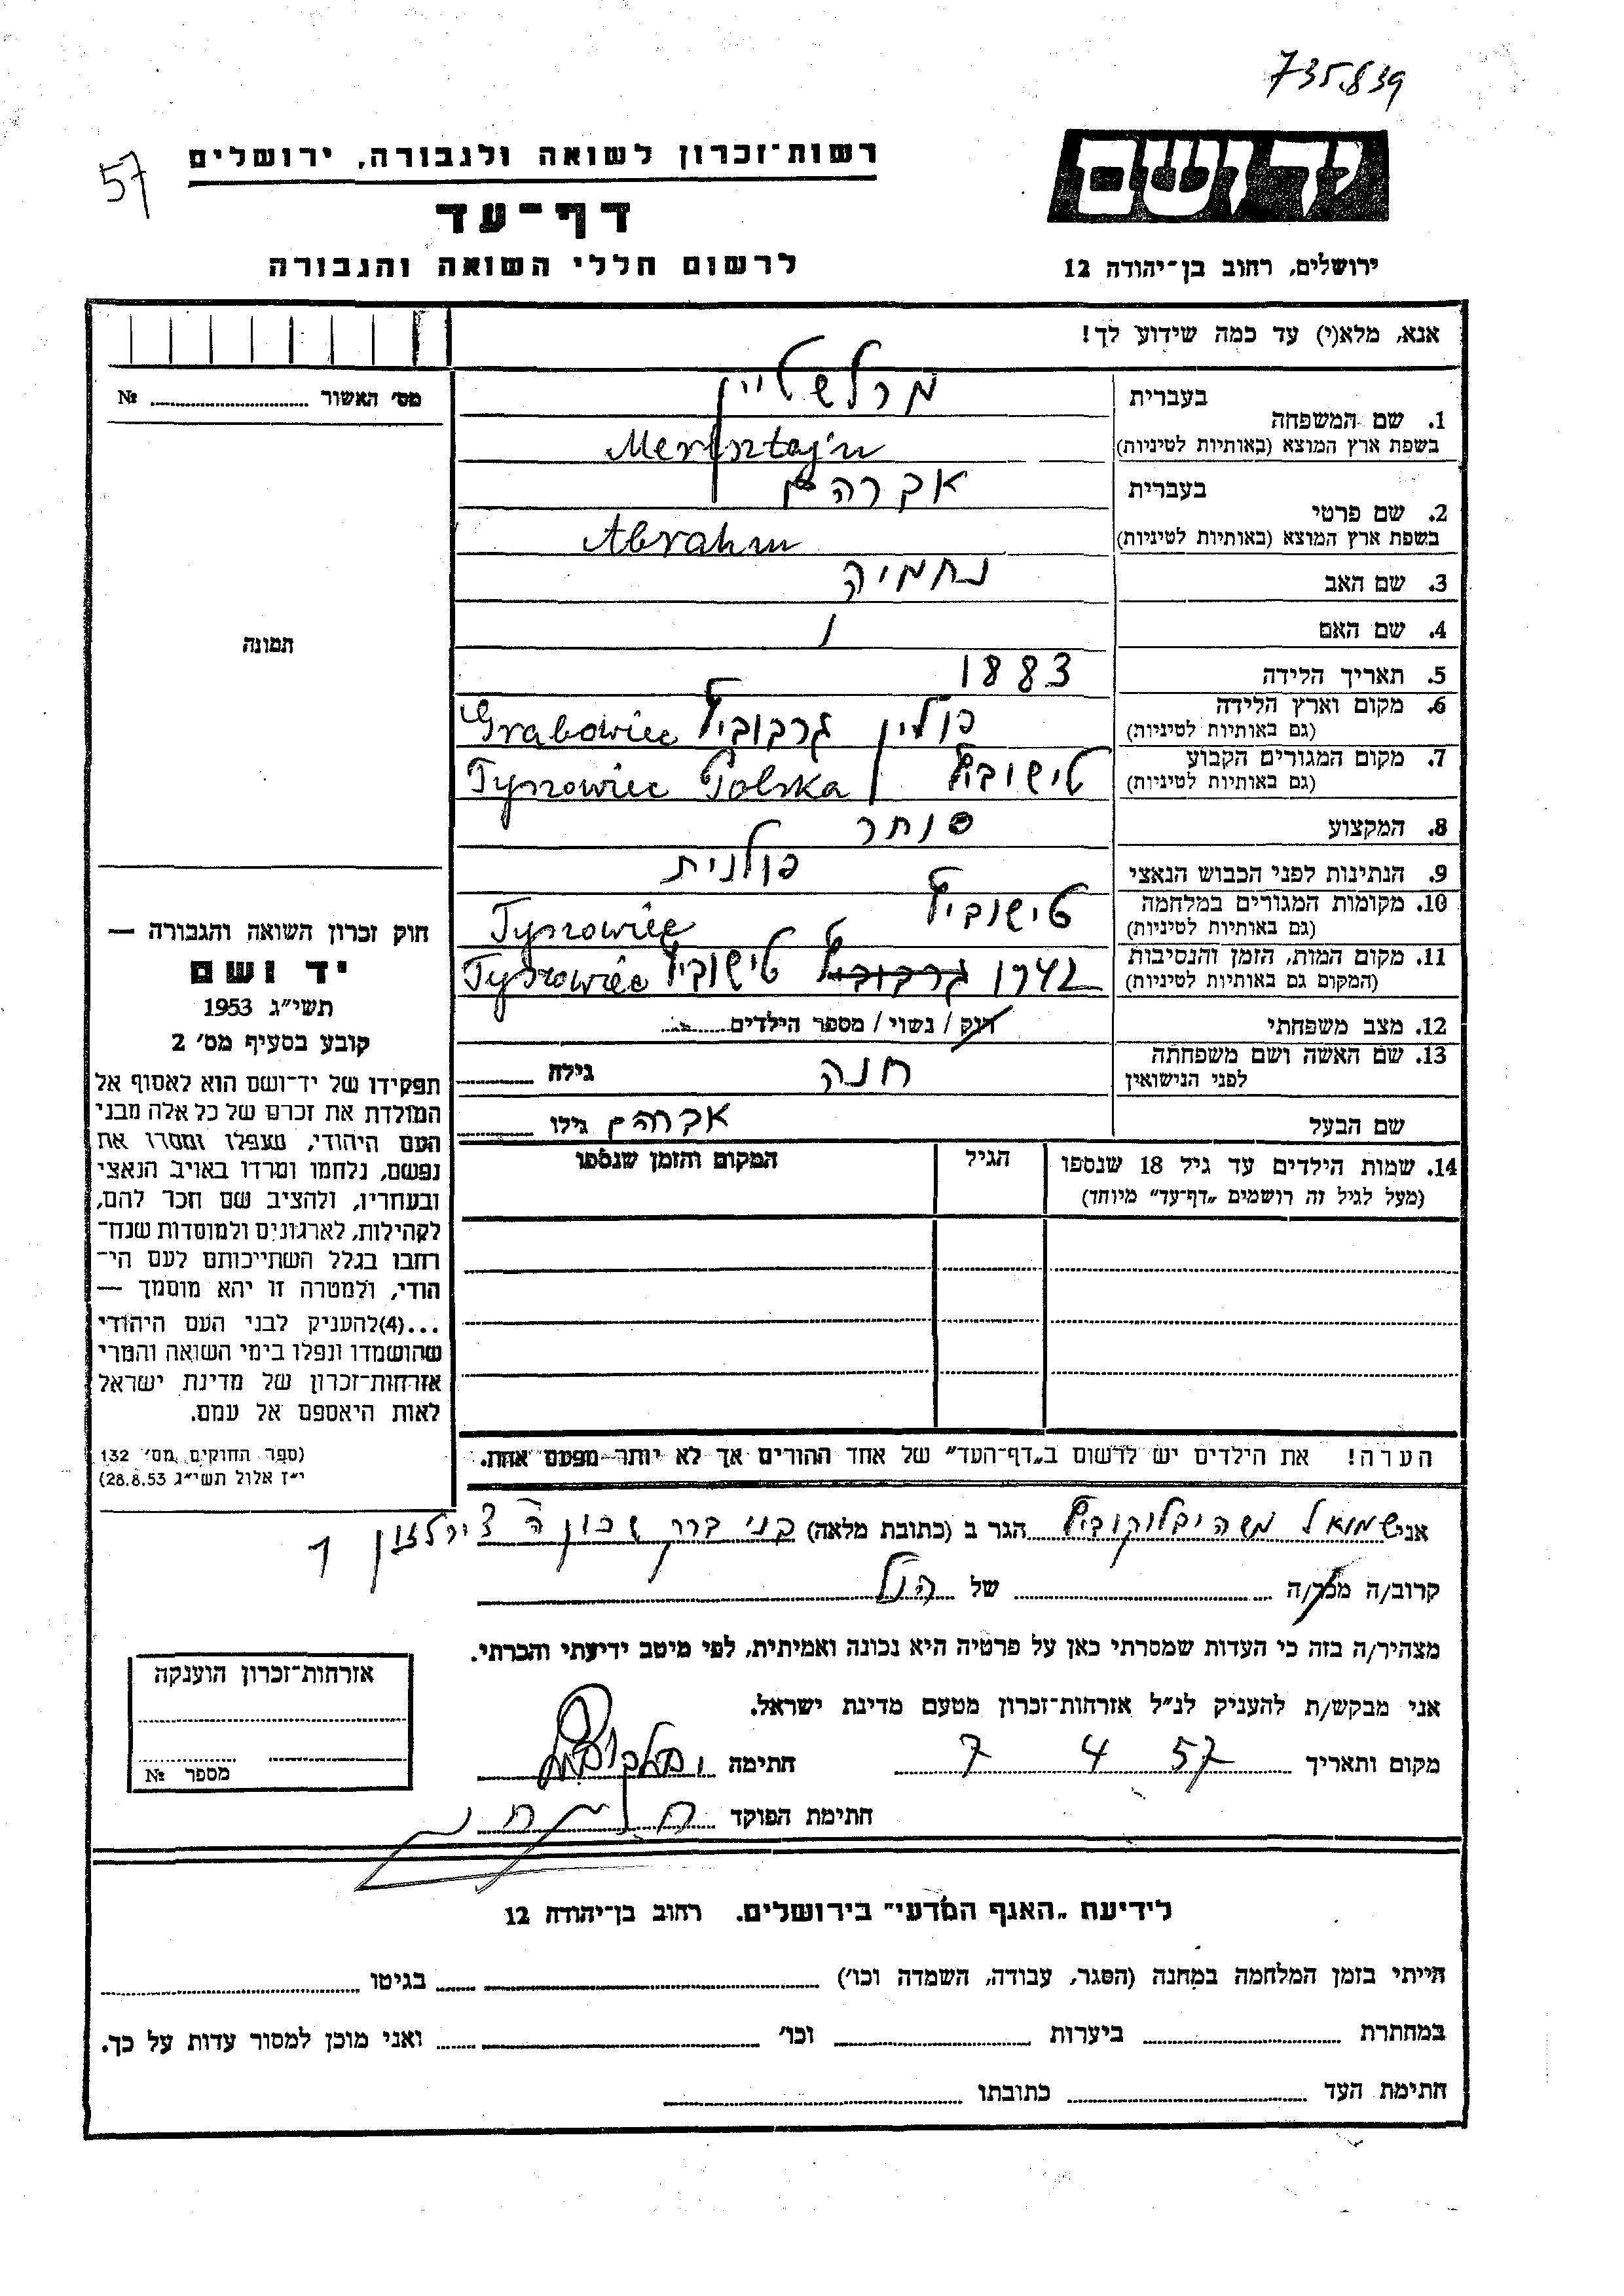 735.839
57
יד ושם
רשות־זכרון לשואה ולגבורה, ירושלים
דף־עד
לרשום חללי השואה והגבורה
ירושלים, רחוב בן־יהודה 12
אנא, מלא(י) עד כמה שידוע לך!
מס׳ האשור № 
תמונה
חוק זכרון השואה והגבורה —
יד ושם
תשי״ג 1953
קובע בסעיף מס׳ 2
תפקידו של יד־ושם הוא לאסוף אל
המולדת את זכרם של כל אלה מבני
העם היהודי, שנפלו ומסרו את
נפשם, נלחמו ומרדו באויב הנאצי
ובעוזריו, ולהציב שם וזכר להם,
לקהילות, לארגונים ולמוסדות שנח־
רבו בגלל השתייכותם לעם הי־
הודי, ולמטרה זו יהא מוסמך —
...(4)להעניק לבני העם היהודי
שהושמדו ונפלו בימי השואה והמרי
אזרחות־זכרון של מדינת ישראל
לאות היאספם אל עמם.
(ספר החוקים מס׳ 132
י״ז אלול תשי״ג 28.8.53)
1. שם המשפחה בעברית מרלשטיין
בשפת ארץ המוצא (באותיות לטיניות) Merlsztajn
2. שם פרטי בעברית אברהם
בשפת ארץ המוצא (באותיות לטיניות) Abrahm
3. שם האב נחמיה
4. שם האם
5. תאריך הלידה 1883
6. מקום וארץ הלידה (גם באותיות לטיניות) פולין גרבוביץ Grabowiec
7. מקום המגורים הקבוע (גם באותיות לטיניות) טישוביץ Tyszowiec Polska
8. המקצוע סוחר
9. הנתינות לפני הכבוש הנאצי פולנית
10. מקומות המגורים במלחמה (גם באותיות לטיניות) טישוביץ Tyszowiec
11. מקום המות, הזמן והנסיבות (המקום גם באותיות לטיניות) 1942 גרבוביץ טישוביץ Tyszowiec
12. מצב משפחתי רווק / נשוי / מספר הילדים
13. שם האשה ושם משפחתה לפני הנישואין חנה גילה
שם הבעל אברהם גילו
14. שמות הילדים עד גיל 18 שנספו הגיל המקום והזמן שנספו
(מעל לגיל זה רושמים „דף־עד״ מיוחד)
הערה! את הילדים יש לרשום ב„דף־העד״ של אחד ההורים אך לא יותר מפעם אחת.
אני שמואל משה הגר ב (כתובת מלאה) בני ברק שכונה ה
קרוב/ה מכר/ה של הנ״ל
מצהיר/ה בזה כי העדות שמסרתי כאן על פרטיה היא נכונה ואמיתית, לפי מיטב ידיעתי והכרתי.
אני מבקש/ת להעניק לנ״ל אזרחות־זכרון מטעם מדינת ישראל.
מקום ותאריך 7 4 57 חתימה
חתימת הפוקד
אזרחות־זכרון הוענקה
מספר №
לידיעת „האגף המדעי״ בירושלים. רחוב בן־יהודה 12
הייתי בזמן המלחמה במחנה (הסגר, עבודה, השמדה וכו׳) בגיטו
במחתרת ביערות וכו׳ ואני מוכן למסור עדות על כך.
חתימת העד כתובתו